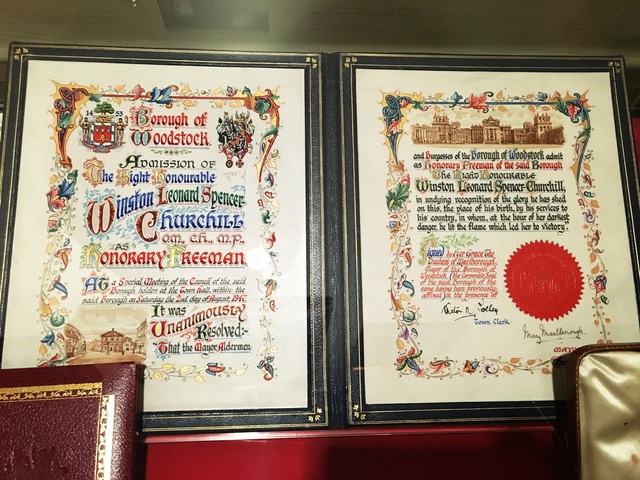 14 53
Borough of
Woodstock
Admission of
The Right Honourable
Winston Leonard Spencer-
Churchill
O.M., C.H., M.P.,
AS
Honorary Freeman
At a Special Meeting of the Council of the said
Borough holden at the Town Hall, within the
said Borough on Saturday the 2nd day of August, 1947,
It was
Unanimously
Resolved:-
That the Mayor, Aldermen
and Burgesses of the Borough of Woodstock admit
as Honorary Freeman of the said Borough
The Right Honourable
Winston Leonard Spencer-Churchill,
in undying recognition of the glory he has shed
on this, the place of his birth, by his services to
his country, in whom, at the hour of her darkest
danger, he lit the flame which led her to victory.
Signed by Her Grace The
Duchess of Marlborough,
Mayor of the Borough of
Woodstock, (the Corporate Seal
of the said Borough of the
same having been previously
affixed) in the presence of
Town Clerk
Mary Marlborough.
MAYOR